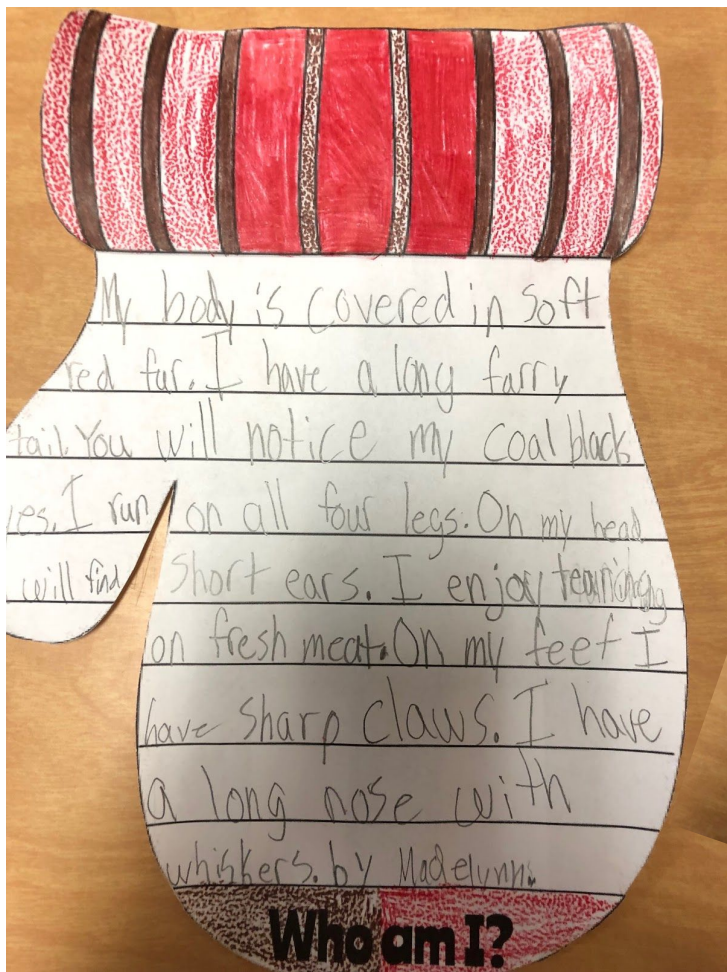 My body is covered in soft
red fur. I have a long farry
tail. You will notice my coal black
es. I run on all four legs. On my head
will find short ears. I enjoy tearing
on fresh meat. On my feet I
have sharp claws. I have
a long nose with
whiskers. by Madelynn.
Who am I?